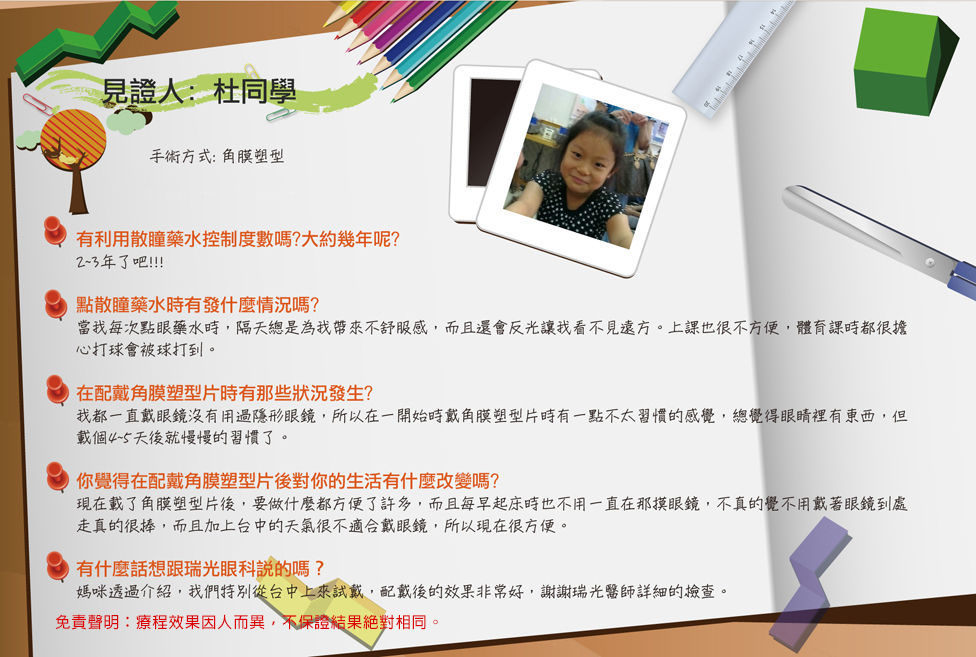 見證人: 杜同學
手術方式: 角膜塑型
有利用散瞳藥水控制度數嗎?大約幾年呢?
2~3年了吧!!!
點散瞳藥水時有發什麼情況嗎?
當我每次點眼藥水時，隔天總是為我帶來不舒服感，而且還會反光讓我看不見遠方。上課也很不方便，體育課時都很擔
心打球會被球打到。
在配戴角膜塑型片時有那些狀況發生?
我都一直戴眼鏡沒有用過隱形眼鏡，所以在一開始時戴角膜塑型片時有一點不太習慣的感覺，總覺得眼睛裡有東西，但
載個4~5天後就慢慢的習慣了。
你覺得在配戴角膜塑型片後對你的生活有什麼改變嗎?
現在載了角膜塑型片後，要做什麼都方便了許多，而且每早起床時也不用一直在那摸眼鏡，不真的覺不用戴著眼鏡到處
走真的很捧，而且加上台中的天氣很不適合戴眼鏡，所以現在很方便。
有什麼話想跟瑞光眼科說的嗎？
媽咪透過介紹，我們特別從台中上來試戴，配戴後的效果非常好，謝謝瑞光醫師詳細的檢查。
免責聲明：療程效果因人而異，不保證結果絕對相同。